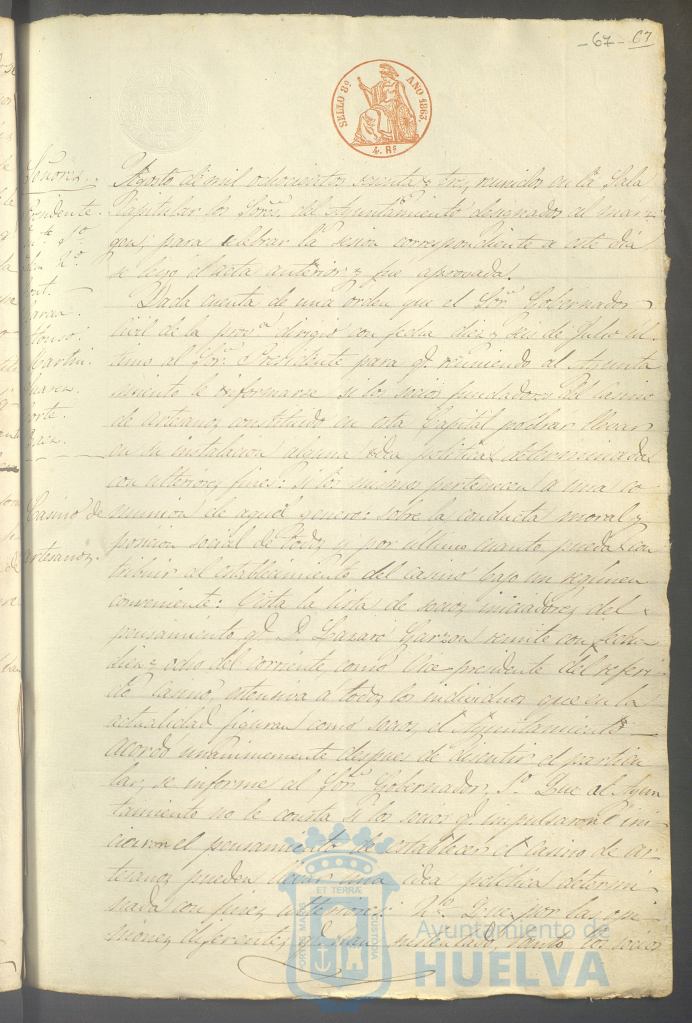 -67- 67
SELLO 8º AÑO 1863.
4. Rs
Señores.
Agosto de mil ochocientos sesenta y tres, reunidos en la Sala
Capitular los Sores. del Ayuntamiento designados al mar-
gen, para celebrar la sesion correspondiente a este dia
se leyó el acta anterior y fue aprovada.
Dada cuenta de una orden que el Sor. Gobernador
Civil de la prova. dirigió con fecha diez y seis de Julio ul-
timo al Sor. Presidente para q. reuniendo al Ayunta
miento le informara si los socios fundadores del Casino
de artesanos constituido en esta Capital podrar llevar
en su instalacion alguna idea politica determinada
con ulteriores fines: si los mismos pertenecen a una co
munion de aquel genero: sobre la conducta moral y
Casino de
artesanos.
posicion social de todos y por ultimo cuanto pueda con
tribuir al establecimiento del casino bajo un regimen
conveniente: Vista la lista de socios iniciadores del
pensamiento q. D. Lazaro Garzon remite con fecha
diez y ocho del corriente, como Vice-presidente del referi
do Casino, estensiva a todos los individuos que en la
actualidad figuran como socios, el Ayuntamiento
acordó unanimemente despues de discutir el particu
lar, se informe al Sor. Gobernador, 1º. Que al Ayun
tamiento no le consta si los socios q. impulsaron é ini-
ciaron el pensamiento de establecer el Casino de ar-
tesanos pueden llevar una idea politica determi
nada con fines ulteriores: 2º. Que por las opi-
niones diferentes q. han sustentado, tanto los socios
PORTUS MARIS
ET TERRÆ
CUSTODIA
Ayuntamiento de
HUELVA